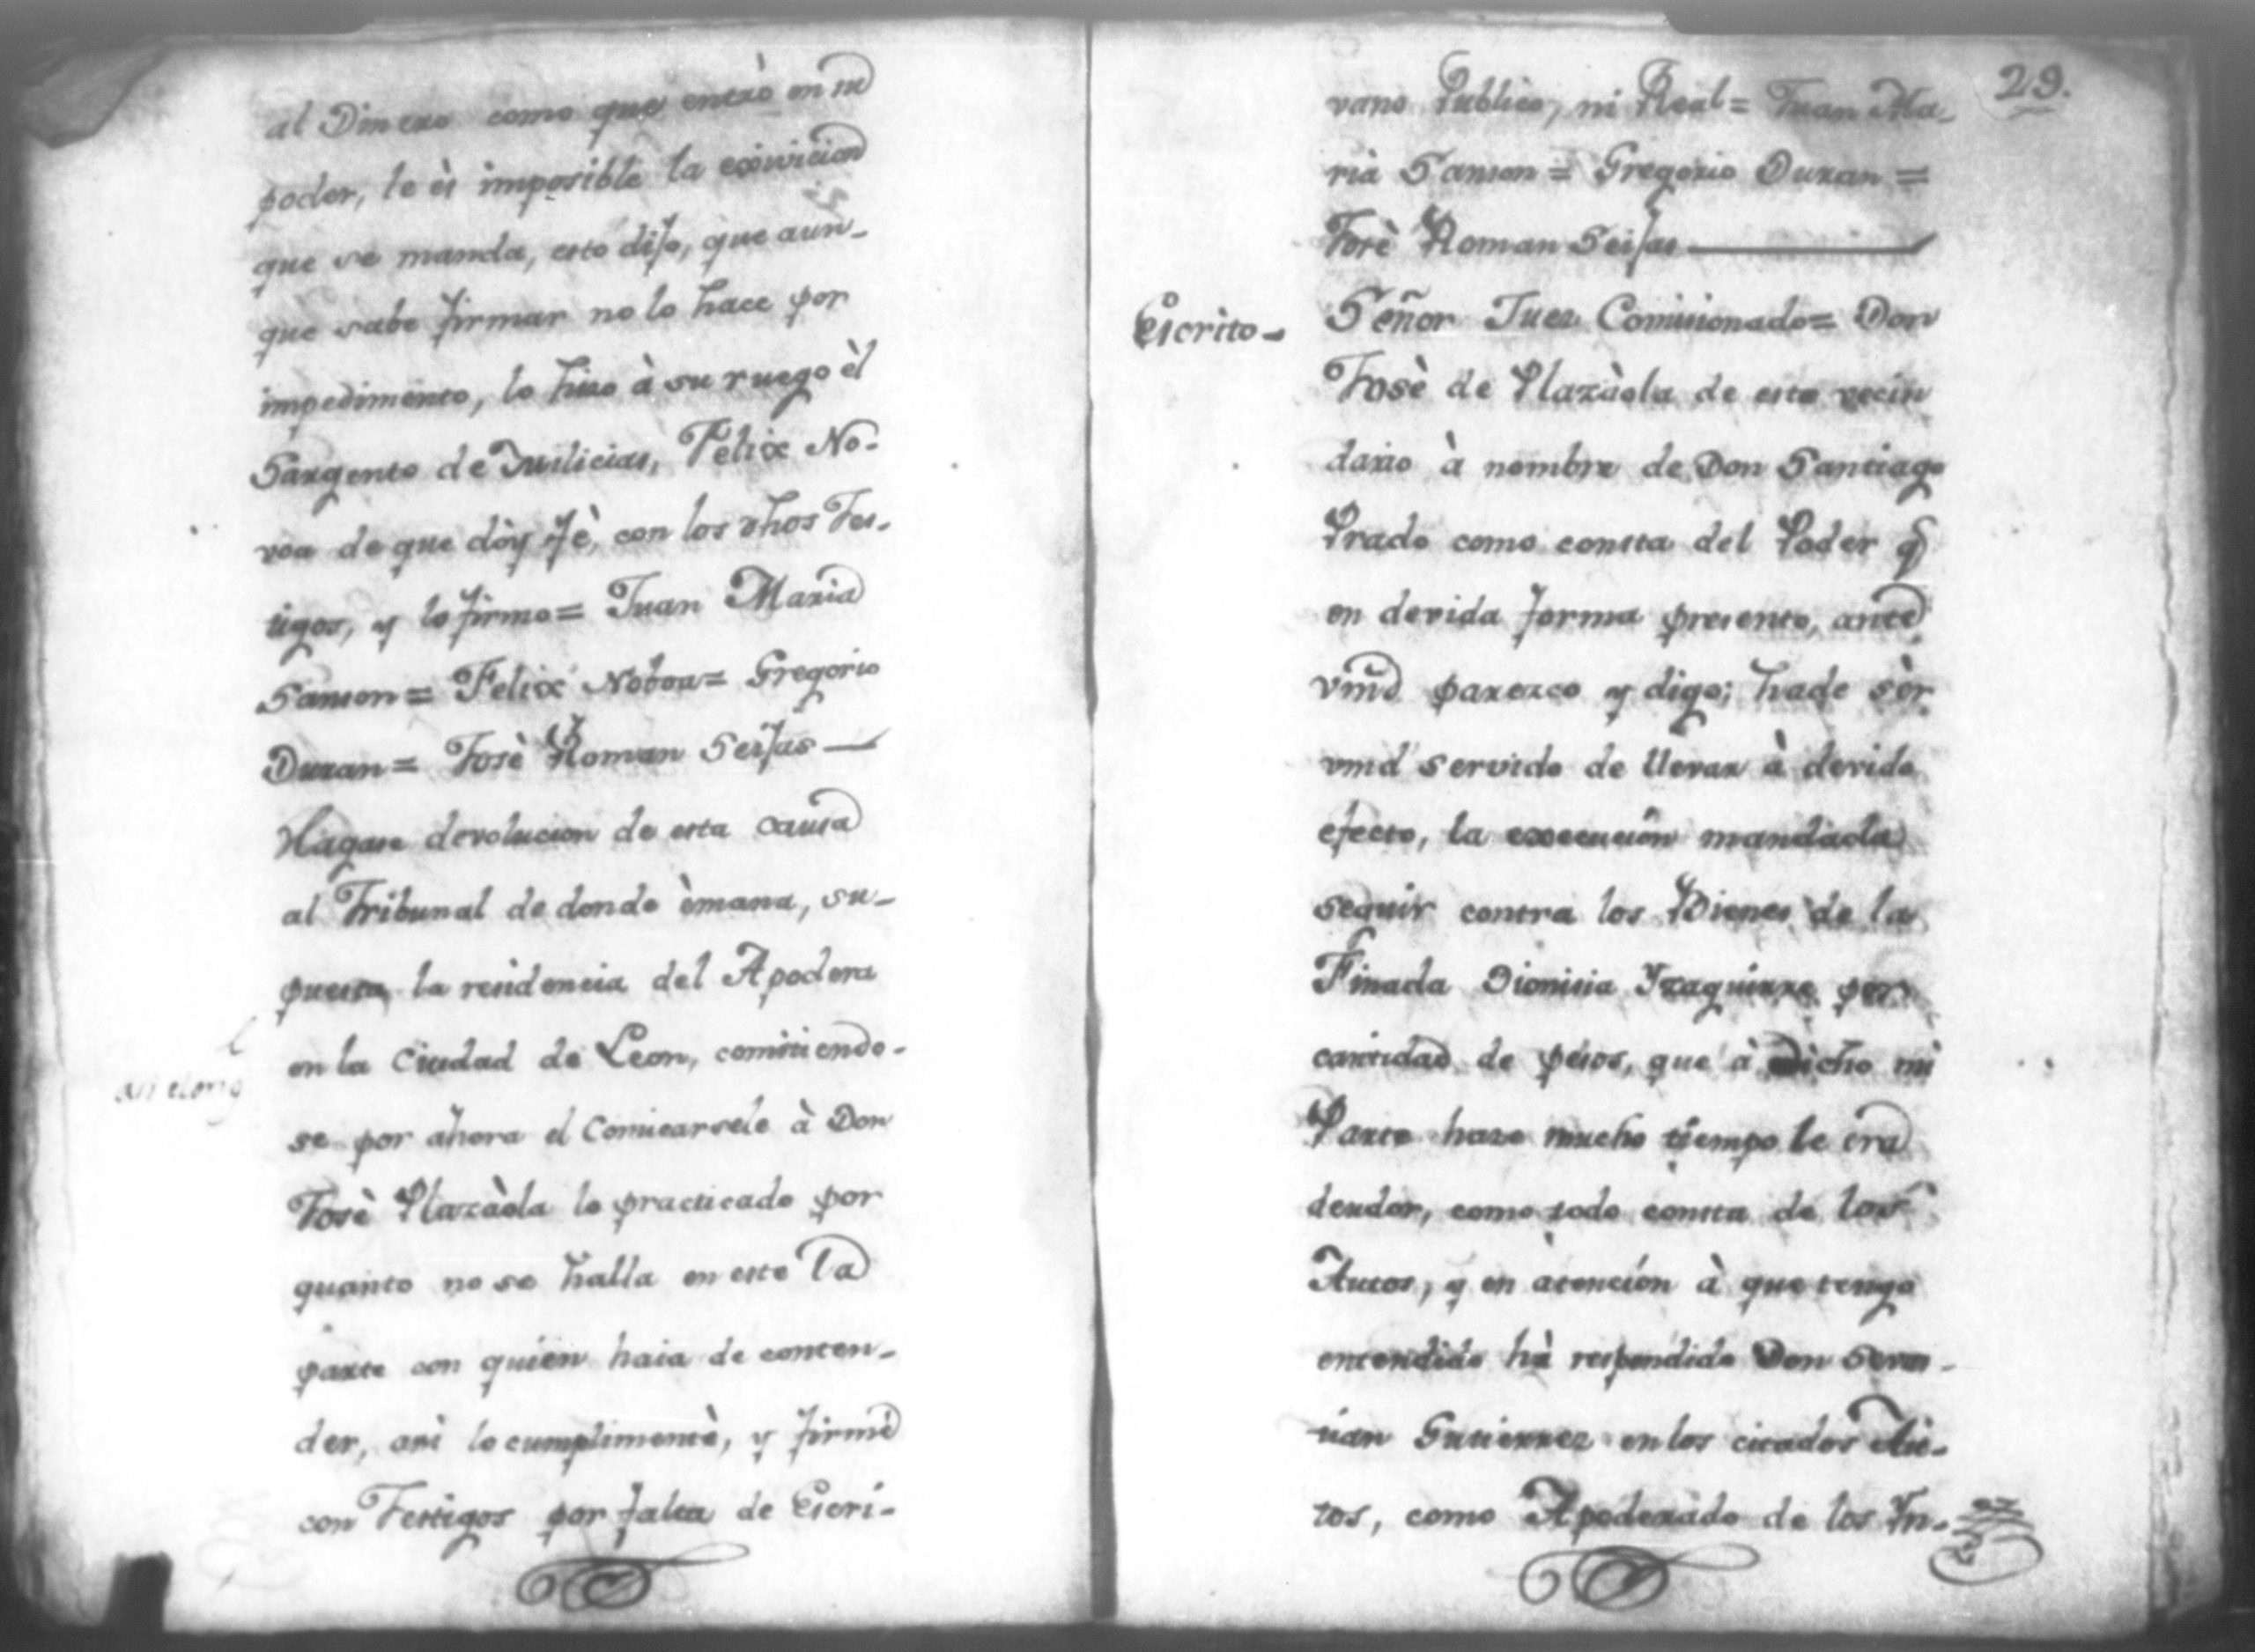 al Dinero como que entrò en su
poder, le ès imposible la exivicion
que se manda, esto dijo, que aun-
que sabe firmar no lo hace por
impedimento, lo hizo à su ruego èl
Sargento de Milicias, Felix No-
voa de que dòy feè, con los dhos Tes-
tigos, y lo firmo = Juan Maria
Samson = Felix Novoa = Gregorio
Duran = Josè Roman Seijas —
Hagase devolucion de esta causa
al Tribunal de donde èmana, su-
puesta la residencia del Apodera
en la Ciudad de Leon, comitiendo-
se por ahora el Comicarsele à Don
Josè Plazàola lo practicado por
quanto no se halla en este La
parte con quien haia de conten-
der, asi lo cumplimentè, y firmè
con Testigos por falta de Escri-
29.
vano Publico, ni Real = Juan Ma-
ria Samson = Gregorio Duran =
Josè Roman Seijas —
Escrito-
Señor Juez Comisionado = Don
Josè de Plazàola de este vecin
dario à nombre de Don Santiago
Prado como consta del Poder q
en devida forma presento, ante
vmd parezco y digo; hade sèr
vmd servido de llevar à devido
efecto, la execucion mandada
seguir contra los Bienes de la
Finada Dionisia Yzaguirre por
cantidad de pesos, que à dicho mi
Parte haze mucho tiempo le era
deudor, como todo consta de los
Autos, y en atencion à que tengo
entendido hà respondido Don Sevas-
tian Gutierrez en los citados Au-
tos, como Apoderado de los Yn-